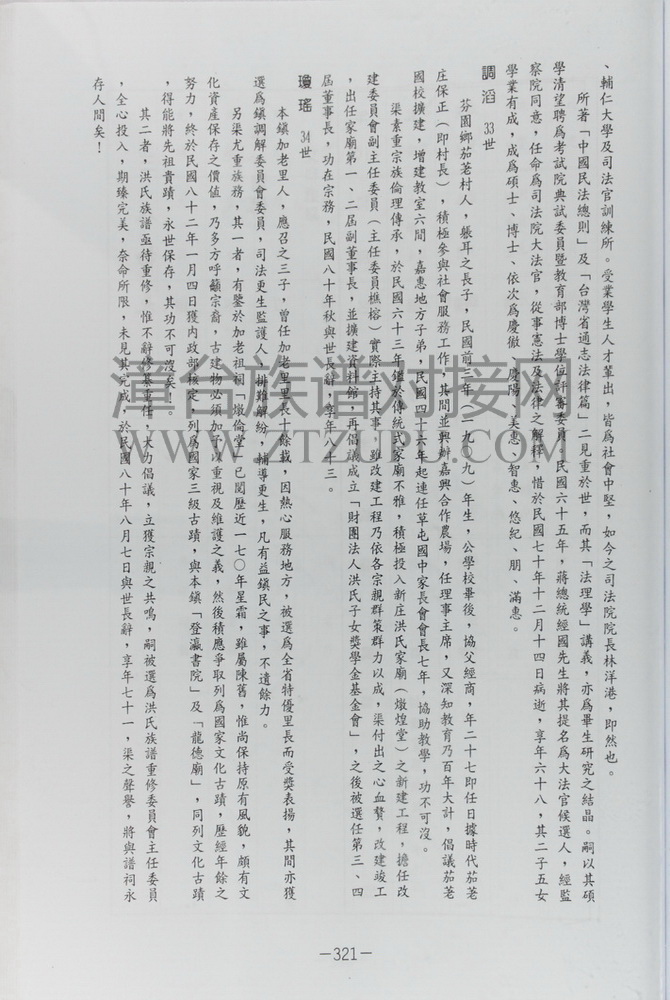 、輔仁大學及司法官訓練所。受業學生人才輩出，皆爲社會中堅，如今之司法院院長林洋港，即然也。
所著「中國民法總則」及「台灣省通志法律篇」二見重於世，而其「法理學」講義，亦爲畢生研究之結晶。嗣以其碩
學清望聘爲考試院典試委員暨教育部博士學位評審委員，民國六十五年，蔣總統經國先生將其提名爲大法官候選人，經監
察院同意，任命爲司法院大法官，從事憲法及法律之解釋，惜於民國七十年十二月十四日病逝，享年六十八，其二子五女
學業有成，成爲碩士、博士、依次爲慶徹、慶陽、美惠、智惠、悠紀、朋、滿惠。
調滔 33世
芬園鄉茄荖村人，躼耳之長子，民國前三年（一九〇九）年生，公學校畢後，協父經商，年二十七即任日據時代茄荖
庄保正（即村長），積極參與社會服務工作，其間並興辦嘉興合作農場，任理事主席，又深知教育乃百年大計，倡議茄荖
國校擴建，增建教室六間，嘉惠地方子弟，民國四十六年起連任草屯國中家長會會長七年，協助教學，功不可沒。
渠素重宗族倫理傳承，於民國六十三年鑑於傳統式家廟不雅，積極投入新庄洪氏家廟（燉煌堂）之新建工程，擔任改
建委員會副主任委員（主任委員樵榕）實際主持其事，雖改建工程乃依各宗親群策群力以成，渠付出之心血贅，改建竣工
，出任家廟第一、二屆副董事長，並擴建資料館，再倡議成立「財團法人洪氏子女獎學金基金會」，之後被選任第三、四
屆董事長，功在宗務，民國八十年秋與世長辭，享年八十三。
瓊瑤 34世
本鎮加老里人，應召之三子，曾任加老里里長十餘載，因熱心服務地方，被選爲全省特優里長而受獎表揚，其間亦獲
選爲鎮調解委員會委員，司法更生監護人，排難解紛，輔導更生，凡有益鎮民之事，不遺餘力。
另渠尤重族務，其一者，有鑒於加老祖祠「燉倫堂」已閱歷近一七〇年星霜，雖屬陳舊，惟尚保持原有風貌，頗有文
化資產保存之價值，乃多方呼籲宗裔，古建物必須加予以重視及維護之義，然後積應爭取列爲國家文化古蹟，歷經年餘之
努力，終於民國八十二年一月四日獲內政部核定，列爲國家三級古蹟，與本鎮「登瀛書院」及「龍德廟」，同列文化古蹟
，得能將先祖貴蹟，永世保存，其功不可沒矣！。
其二者，洪氏族譜亟待重修，惟不辭修纂重任，大力倡議，立獲宗親之共鳴，嗣被選爲洪氏族譜重修委員會主任委員
，全心投入，期臻完美，奈命所限，未見其完成，於民國八十年八月七日與世長辭，享年七十一，渠之聲譽，將與譜祠永
存人間矣！
—321—
漳台族谱对接网
WWW.ZTZUPU.COM